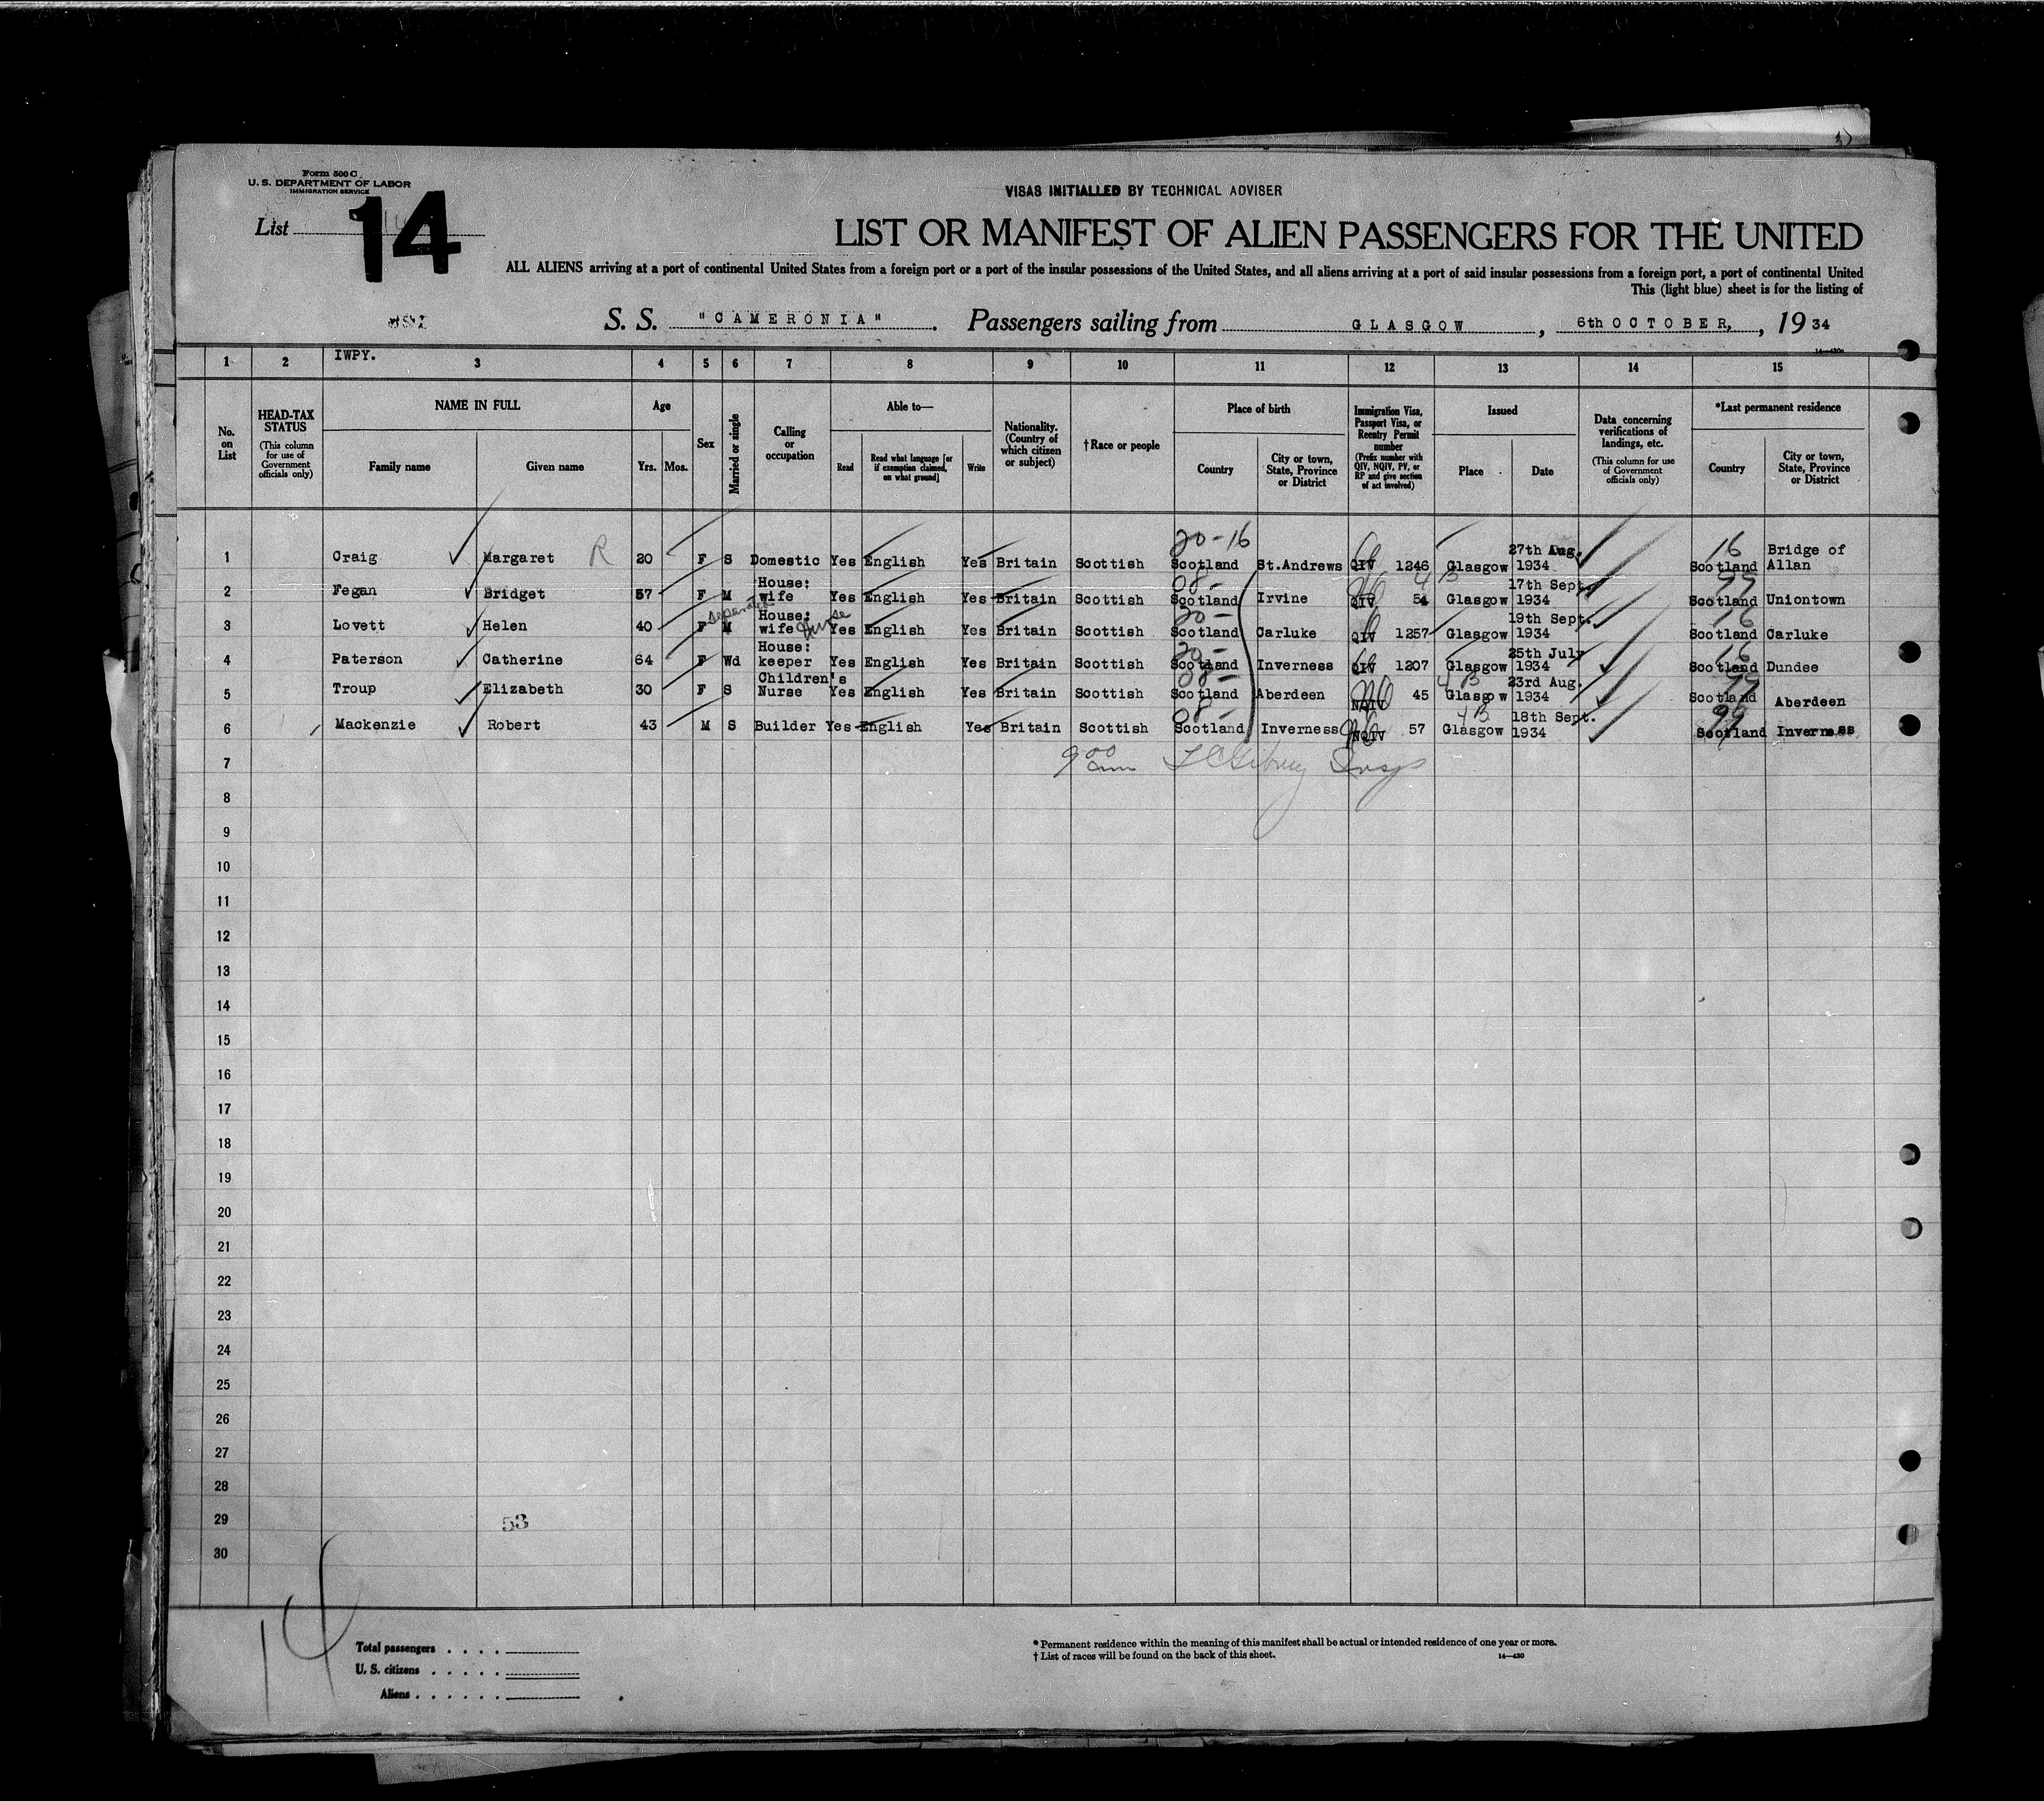 Form 500 C
U. S. DEPARTMENT OF LABOR
IMMIGRATION SERVICE
VISAS INITIALLED BY TECHNICAL ADVISER
List 14
LIST OR MANIFEST OF ALIEN PASSENGERS FOR THE UNITED
ALL ALIENS arriving at a port of continental United States from a foreign port or a port of the insular possessions of the United States, and all aliens arriving at a port of said insular possessions from a foreign port, a port of continental United
This (light blue) sheet is for the listing of
S. S. "CAMERONIA". Passengers sailing from GLASGOW, 6th OCTOBER, , 1934
IWPY.
1 2 3 4 5 6 7 8 9 10 11 12 13 14 15
No. on List
HEAD-TAX STATUS (This column for use of Government officials only)
NAME IN FULL Family name Given name
Age Yrs. Mos.
Sex
Married or single
Calling or occupation
Able to— Read Read what language [or if exemption claimed, on what ground] Write
Nationality. (Country of which citizen or subject)
†Race or people
Place of birth Country City or town, State, Province or District
Immigration Visa, Passport Visa, or Reentry Permit number (Prefix number with QIV, NQIV, PV, or RP and give section of act involved)
Issued Place Date
Data concerning verifications of landings, etc. (This column for use of Government officials only)
*Last permanent residence Country City or town, State, Province or District
1 Craig Margaret R 20 F S Domestic Yes English Yes Britain Scottish 20-16 Scotland St.Andrews QIV 1246 Glasgow 27th Aug. 1934 16 Scotland Bridge of Allan
2 Fegan Bridget 57 F M House: wife Yes English Yes Britain Scottish 08- Scotland Irvine 54 4B Glasgow 17th Sept. 1934 99 Scotland Uniontown
3 Lovett Helen 40 F M separated House: wife Yes English Yes Britain Scottish 20- Scotland Carluke QIV 1257 Glasgow 19th Sept. 1934 16 Scotland Carluke
4 Paterson Catherine 64 F Wd House: keeper Yes English Yes Britain Scottish 20- Scotland Inverness QIV 1207 Glasgow 25th July 1934 16 Scotland Dundee
5 Troup Elizabeth 30 F S Children's Nurse Yes English Yes Britain Scottish 08- Scotland Aberdeen NQIV 45 4B Glasgow 23rd Aug. 1934 99 Scotland Aberdeen
6 Mackenzie Robert 43 M S Builder Yes English Yes Britain Scottish 08- Scotland Inverness NQIV 57 4B Glasgow 18th Sept. 1934 99 Scotland Inverness
7 9 00 am Insp
8
9
10
11
12
13
14
15
16
17
18
19
20
21
22
23
24
25
26
27
28
29 53
30
14
Total passengers . . . .
U. S. citizens . . . . .
Aliens . . . . . .
* Permanent residence within the meaning of this manifest shall be actual or intended residence of one year or more.
† List of races will be found on the back of this sheet. 14—430